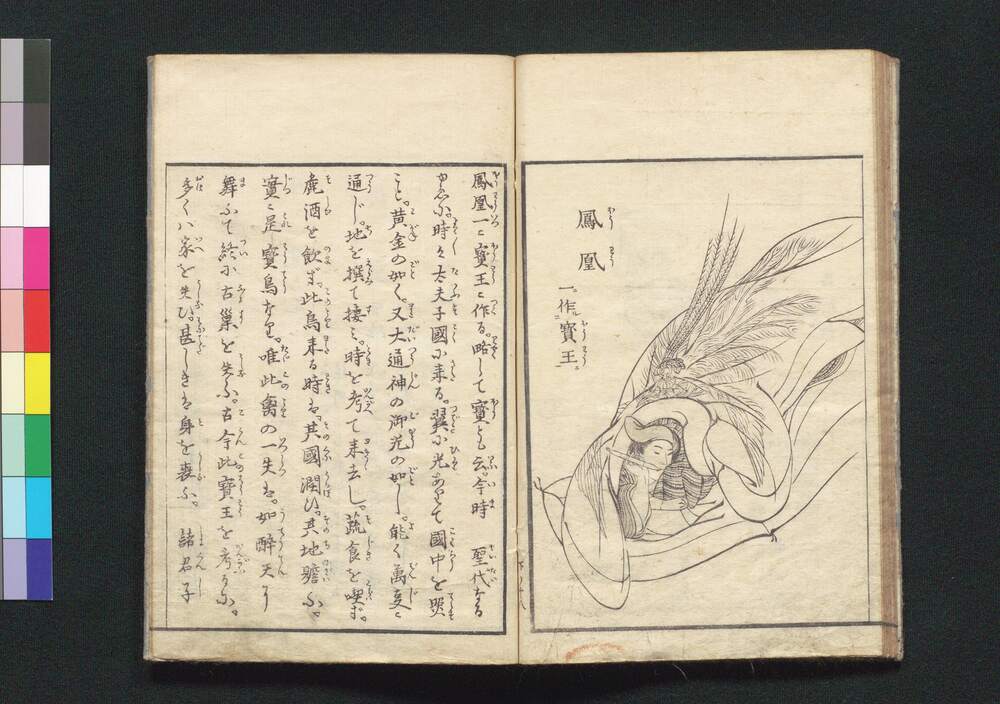 鳳凰
一作寳王
鳳凰一ニ寳王ニ作る。略して寳とも云。今時 聖代なる
ゆゑに。時々太夫子國に来る。翼に光ありて國中を照
こと。黄金の如く。又大通神の御光の如し。能く萬夏ニ
通じ。地を撰て捿ミ。時を考て来去し。蔬食を喫ず。
麁酒を飲ず。此鳥来る時ハ。其國潤ひ。其地贍ふ。
實ニ是寳鳥なり。唯此禽の一失ハ。如醉天より
舞ふて終に古巣を失ふ。古今此寳王を考るに。
多くハ家を失ひ。甚しきハ身を喪ふ。 諸君子